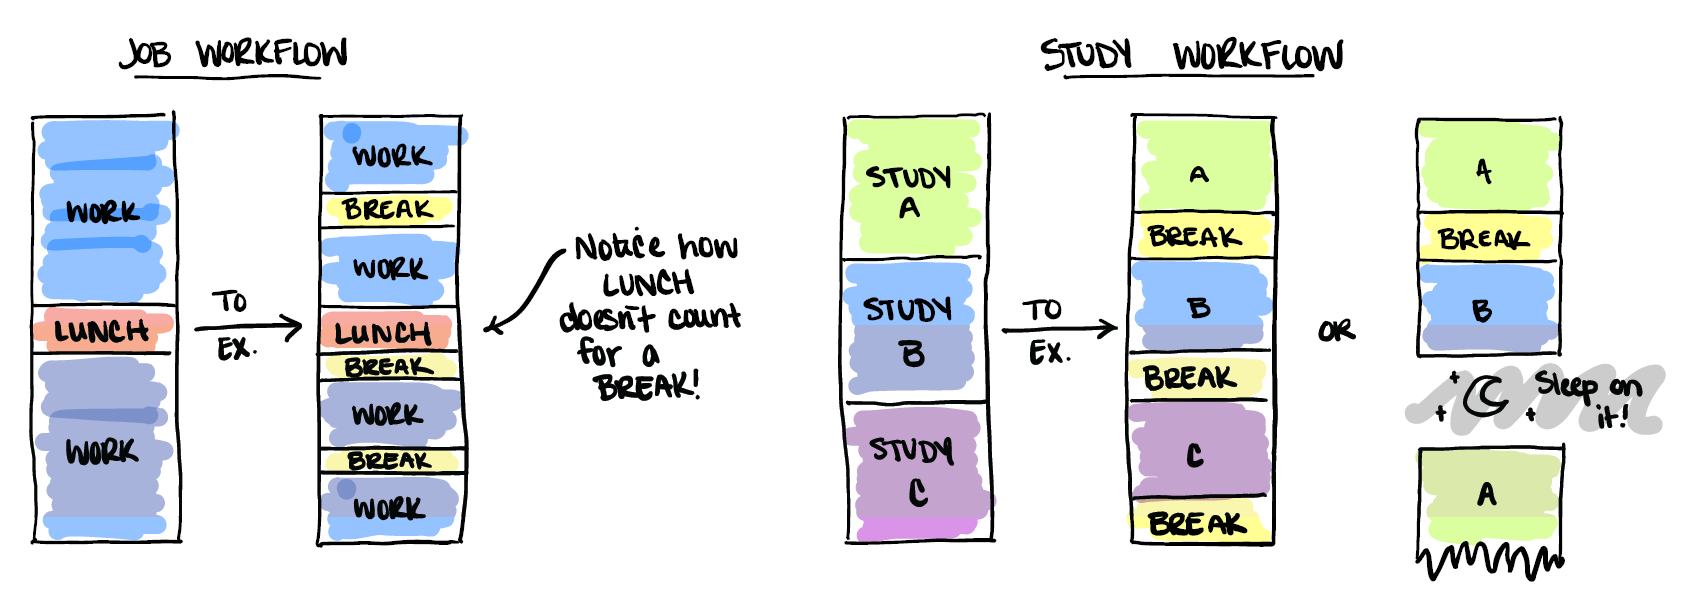 JOB WORKFLOW
WORK
LUNCH
WORK
TO
EX.
WORK
BREAK
WORK
LUNCH
BREAK
WORK
BREAK
WORK
Notice how
LUNCH
doesn't count
for a
BREAK!
STUDY WORKFLOW
STUDY
A
STUDY
B
STUDY
C
TO
EX.
A
BREAK
B
BREAK
C
BREAK
OR
A
BREAK
B
Sleep on
it!
A